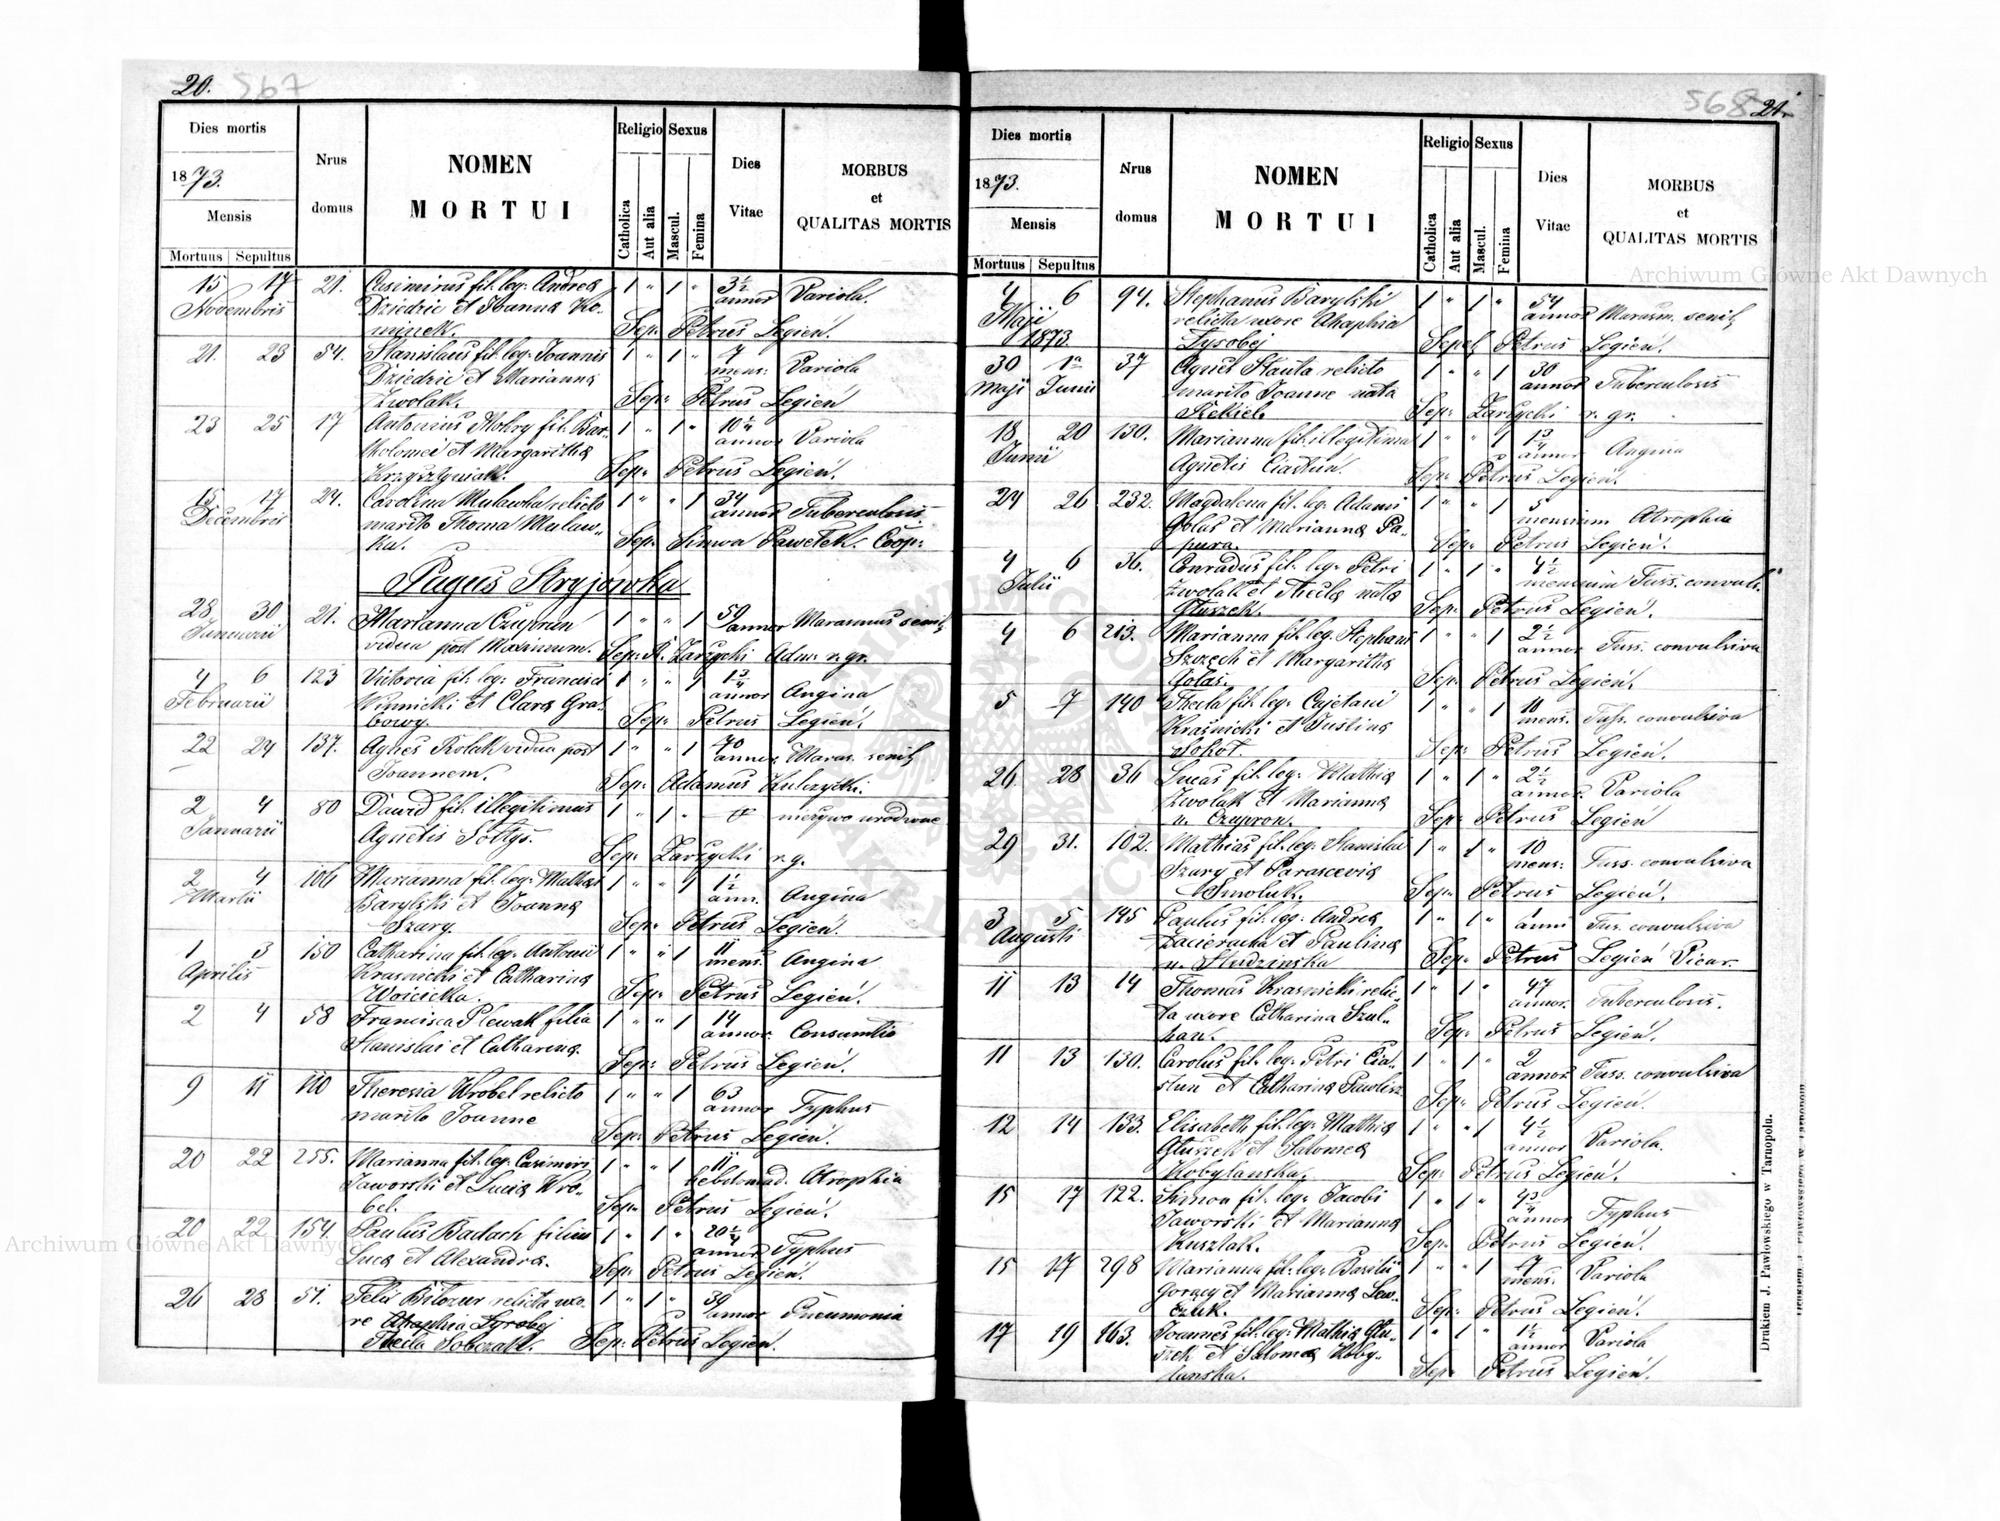 20. 567
Dies mortis
Nrus domus
NOMEN MORTUI
Religio
Sexus
Dies Vitae
MORBUS et QUALITAS MORTIS
1873.
Mensis
Mortuus Sepultus
Catholica
Aut alia
Mascul.
Femina
15 17 21. Casimirus fil. leg. Andreae 1 " 1 " 3½
Novembris Dziedzic et Joanna Ko- annor Variola.
minek. Sep: Petrus Legień.
21. 23 54. Stanislaus fil. leg. Joannis 1 " 1 " 7
Dziedzic et Marianna mens: Variola
Zwolak. Sep: Petrus Legień
23 25 17 Antonius Mokry fil. Bar- 1 " 1 "
tholomei et Margaritha annor Variola
Sep: Petrus Legień.
15 17 24. Carolina Mulawka relicto 1 " " 1 34
Decembris marito Thoma Mulaw- annor Tuberculosis
ka. Sep: Simon Pawełek Coop:
Pagus Stryjówka
28 30 21. Marianna Czupron 1 " " 1 50
Januarii vidua post Maximum. annor Marasmus senil
Sep: R. Zarzycki Adm: r. gr.
4 6 123 Victoria fil. leg: Francisci 1 " " 1 1¾
Februarii Winnicki et Clara Gra- annor Angina
bowy. Sep: Petrus Legień.
22 24 137. Agnes Rolak vidua post 1 " " 1 70
Joannem. annor Maras. senil
Sep: Adamus Kulczycki.
2 4 80 Dawid fil. illegitimus 1 " 1 " nieżywo urodzone
Januarii Agnetis Sołtys.
Sep: Zarzycki r. g.
2 4 106 Marianna fil. leg. Mathiae 1 " " 1 1½
Martii Barylski et Joanna ann. Angina
Szary. Sep: Petrus Legień.
1 3 150 Catharina fil. leg. Antonii 1 " " 1 11
Aprilis Krasnicki et Catharina mens. Angina
Woicicka. Sep: Petrus Legień.
2 4 58 Francisca Plewak filia 1 " " 1 14
Stanislai et Catharina. annor. Consumtio
Sep: Petrus Legień.
9 11 110 Theresia Wrobel relicto 1 " " 1 63
marito Joanne annor Typhus
Sep: Petrus Legień.
20 22 255. Marianna fil. leg. Casimiri 1 " " 1 11
Jaworski et Lucia Wro- hebdomad. Atrophia
bel. Sep: Petrus Legień.
20 22 154. Paulus Badach filius 1 " 1 " 20¼
Luca et Alexandra. annor Typhus
Sep: Petrus Legień.
26 28 51. Felix Biłozur relicta uxo- 1 " 1 " 39
re Ahaphia Lysobej annor Pneumonia
Thecla Sobczak. Sep: Petrus Legień.
568 21.
Dies mortis
Nrus domus
NOMEN MORTUI
Religio
Sexus
Dies Vitae
MORBUS et QUALITAS MORTIS
1873.
Mensis
Mortuus Sepultus
Catholica
Aut alia
Mascul.
Femina
4 6 94. Stephanus Barylski 1 " 1 " 54
Maji relicta uxore Ahaphia annor Marasm. senil
1873. Lysobej Sepel Petrus Legień.
30 1a 37 Agnes Slauta relicto 1 " " 1 30
Maji Junii marito Joanne nata annor Tuberculosis
Rekiel. Sep: Zarzycki r. gr.
18 20 130. Marianna fil. illegitima 1 " " 1 1¾
Junii Agnetis Ciastun. annor Angina
Sep: Petrus Legień.
24 26 232. Magdalena fil. leg. Adami 1 " " 1 5
Golas et Marianna Pa- mensium Atrophia
pura. Sep: Petrus Legień.
4 6 36. Conradus fil. leg. Petri 1 " 1 " 4½
Julii Zwolak et Thecla nata mensium Tuss. convuls.
Głuszek. Sep: Petrus Legień.
4 6 213. Marianna fil. leg. Stephani 1 " " 1 2½
Szozech et Margaritha annor Tuss. convulsiva
Golas. Sep: Petrus Legień.
5 7 140 Thecla fil. leg. Cajetani 1 " " 1 10
Kraśnicki et Justina mens. Tuss. convulsiva
Sokoł. Sep: Petrus Legień.
26 28 36 Lucas fil. leg. Mathia 1 " 1 " 2½
Zwolak et Marianna annor. Variola
n. Czupron. Sep: Petrus Legień
29 31. 102. Mathias fil. leg. Stanislai 1 " 1 " 10
Szary et Parascevia mens: Tuss. convulsiva
Smoluk. Sep: Petrus Legień.
3 5 145 Paulus fil. leg. Andrea 1 " 1 " 1
Augusti Zacieracha et Paulina anni Tus. convulsiva
n. Studzinska Sep: Petrus Legień Vicar.
11 13 14 Thomas Krasnicki relic- 1 " 1 " 47
ta uxore Catharina Szul- annor. Tuberculosis.
han. Sep: Petrus Legień.
11 13 130. Carolus fil. leg. Petri Cia- 1 " 1 " 2
stun et Catharina Pawlisz. annor Tuss. convulsiva
Sep: Petrus Legień.
12 14 133. Elisabeth fil. leg. Mathia 1 " " 1 4½
Głuszek et Salomea annor Variola.
Kobylanska. Sep: Petrus Legień.
15 17 122. Simon fil. leg. Jacobi 1 " 1 " 4¾
Jaworski et Marianna annor Typhus
Kusztak. Sep: Petrus Legień.
15 17 298 Marianna fil. leg. Basilii 1 " " 1
Goracy et Marianna Sew- mens. Variola
czuk. Sep: Petrus Legień.
17 19 163. Joannes fil. leg. Mathia Głu- 1 " 1 " 1½
szek et Salomea Koby- annor Variola
lanska. Sep: Petrus Legień.
Drukiem J. Pawłowskiego w Tarnopolu.
Archiwum Główne Akt Dawnych
Archiwum Główne Akt Dawnych
ARCHIWUM GŁÓWNE AKT DAWNYCH